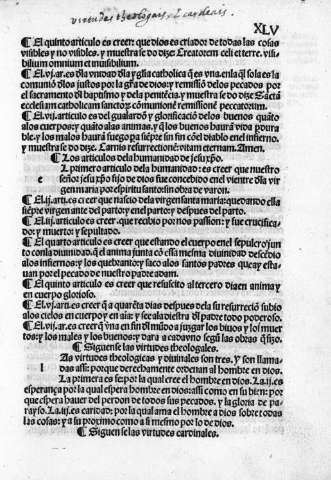 virtudes theologales, e cardinales
XLV
¶ El quinto articulo es creer: que dios es criador de todas las cosas
visibles y no visibles. y muestra se do dize. Creatorem celi et terre. visi-
bilium omnium et inuisibilium.
¶ El .vj. ar. es d̃la vnidad d̃la ygl̃ia catholica q̃ es vna. enla q̃l sola es la
comunió d̃los justos por la gr̃a de dios: y remissió delos pecados por
el sacramento d̃l baptismo y dela penitẽcia. y muestra se do dize. Sãctã
ecclesiam catholicam sanctoꝝ cómunionẽ remissionẽ peccatorum.
¶ El .vij. articulo es del gualardó y glorificació delos buenos quãto
alos cuerpos: y quãto alas animas. y q̃ los buenos haurã vida pdura
ble. y los malos haurã fuego pa siẽpre sin fin cóel diablo enel infierno.
y muestra se do dize. Carnis resurrectionẽ: vitam eternam. Amen.
¶ Los articulos dela humanidad de jesuxp̃o.
L primero articulo dela humanidad: es creer que nuestro
e señor jesuxp̃o fijo de dios fue concebido enel vientre d̃la vir
gen maria por espiritu santo: sin obra de varon.
¶ El .ij. arti. es creer que nascio dela virgen santa maria: quedando ella
siẽpre virgen ante del parto: y enel parto: y despues del parto.
¶ El .iij. articulo es creer. que recibio por nos passion: y fue crucifica-
do: y muerto: y sepultado.
¶ El quarto articulo es creer que estando el cuerpo enel sepulcro jun
to conla diuinidad. q̃l anima junta có essa mesma diuinidad descẽdio
alos infiernos: y los quebranto: y saco alos santos padres que ay esta-
uan por el pecado de nuestro padre adam.
¶ El quinto articulo es creer que resuscito al tercero dia en anima y
en cuerpo glorioso.
¶ El .vj. arti. es creer q̃ a quarẽta dias despues dela su resurreció subio
alos cielos en cuerpo y en aĩa: y see ala diestra d̃l padre todo poderoso.
¶ El .vij. ar. es creer q̃ vna en fin d̃l mũdo a juzgar los biuos y los muer
tos: y los males y los buenos: y dara a cadavno segũ las obras q̃ fizo.
¶ Siguense las virtudes theologales.
As virtudes theologicas y diuinales son tres. y son llama-
l das assi: porque derechamente ordenan al hombre en dios.
La primera es fe: por la qual cree el hombre en dios. La .ij. es
esperança por la qual espera hombre en dios: assi como en su bien: por
que espera hauer del perdon de todos sus pecados. y la gloria de pa-
rayso. La .iij. es caridad: por la qual ama el hombre a dios sobre todas
las cosas: y a su proximo como a si mesmo por lo de dios.
¶ Siguen se las virtudes cardinales.